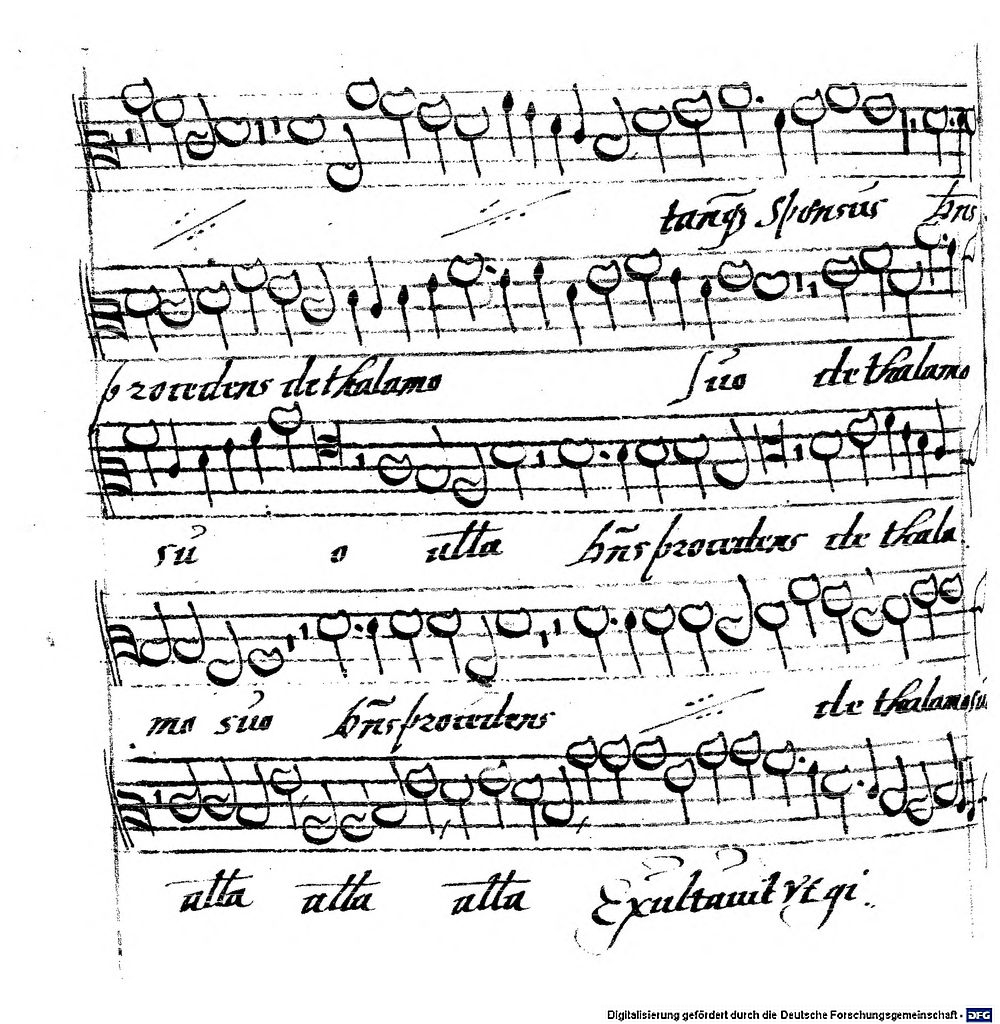 tanq̃ sponsus dñs
procedens de thalamo suo de thalamo
su o alla dñs procedens de thala
mo suo dñs procedens de thalamo su
alla alla alla Exultavit vt gi
Digitalisierung gefördert durch die Deutsche Forschungsgemeinschaft - DFG